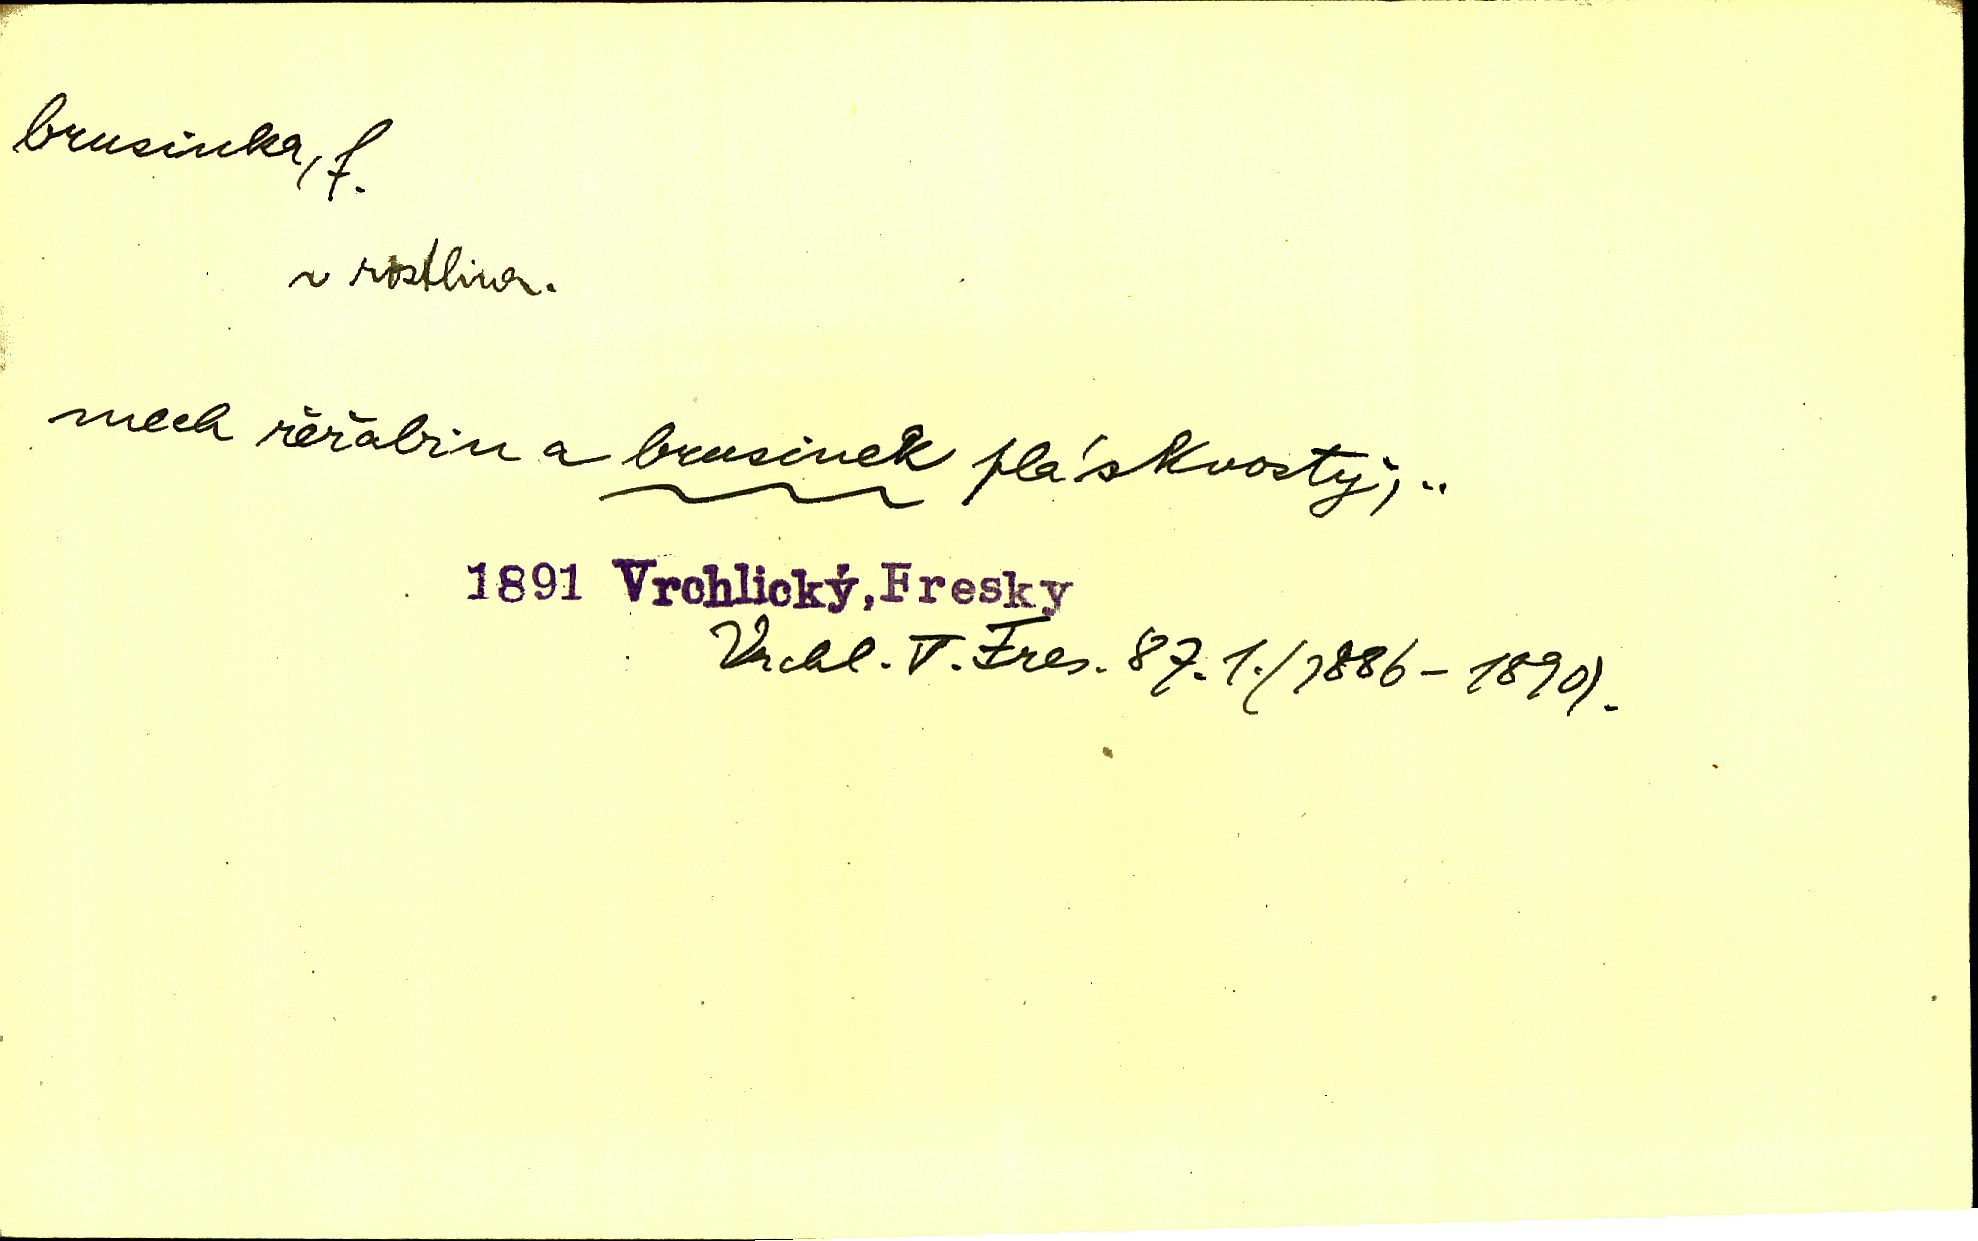 brusinka, f.
~ rostlina.
mech řeřabin a brusinek plá skvostý, ..
1891 Vrchlický, Fresky
Vrchl. V. Fres. 87. 1. (1886 - 1890).